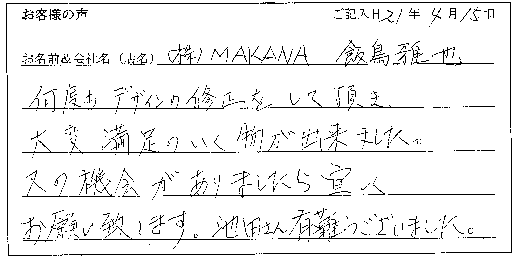 お客様の声 ご記入日 21年 4月 15日
お名前&会社名(店名) (株)MAKANA 飯島雅也
何度もデザインの修正をして頂き、
大変満足のいく物が出来ました。
又の機会がありましたら宜しく
お願い致します。池田さん有難うございました。